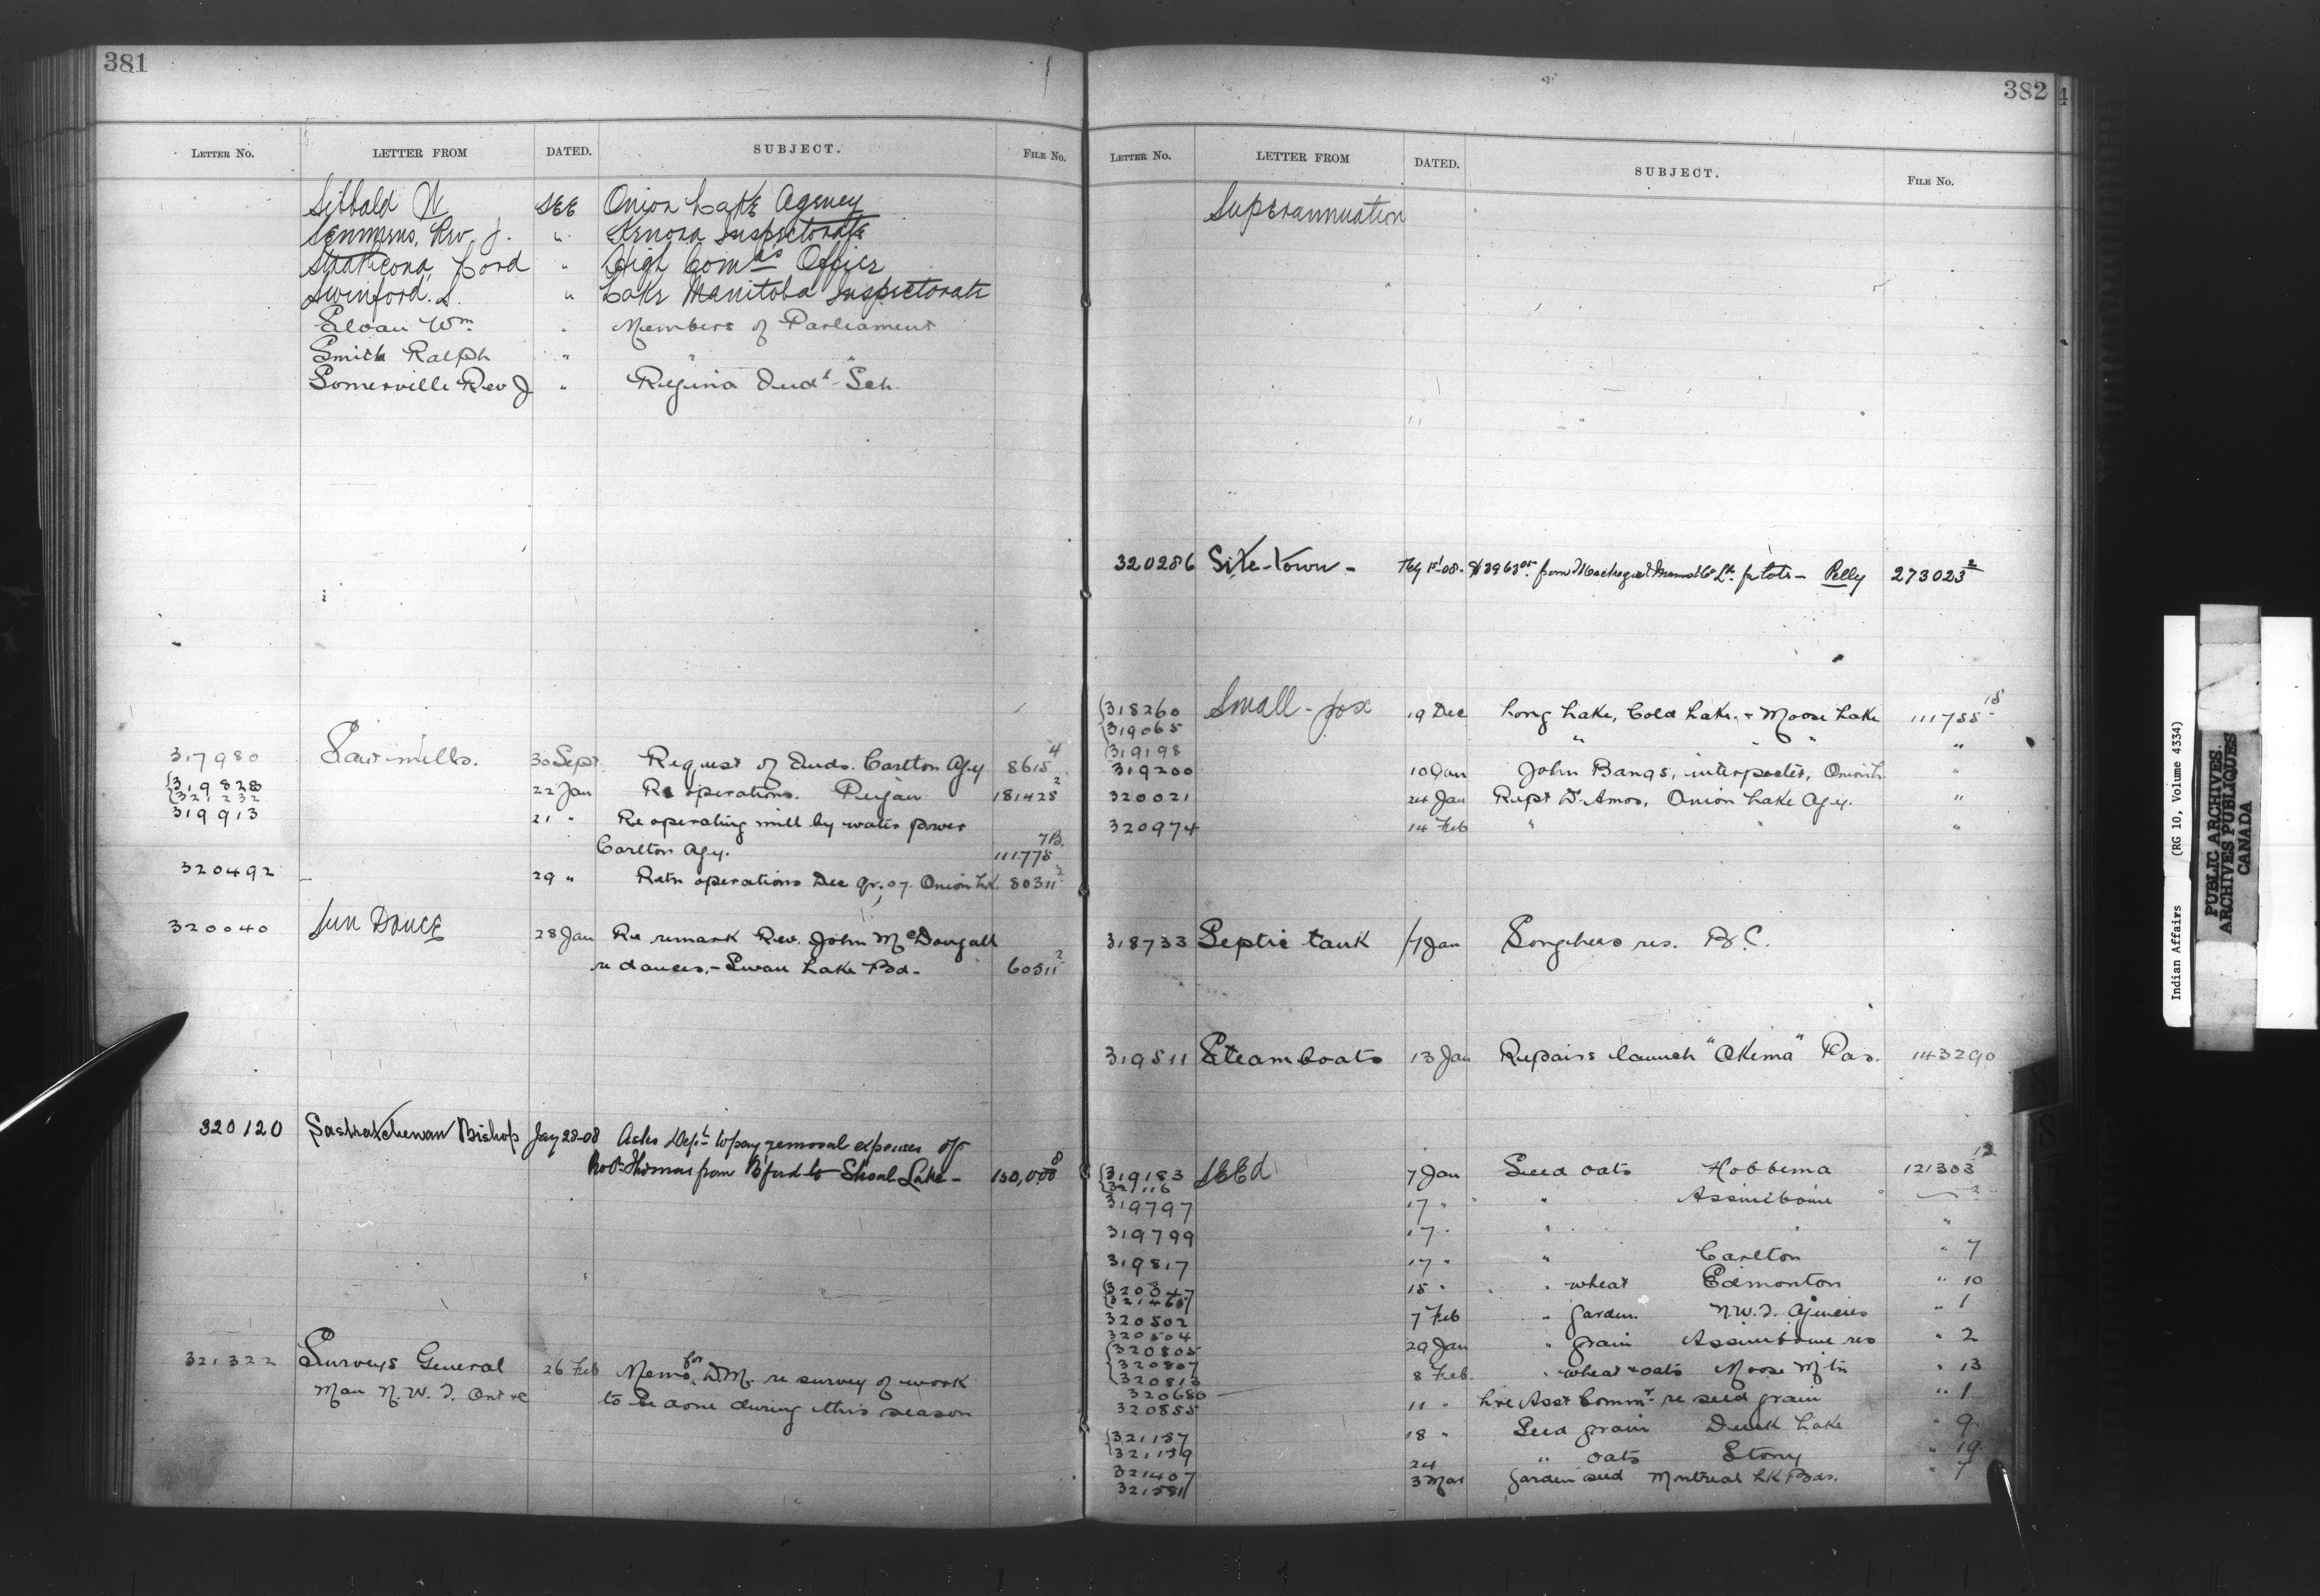 381
LETTER NO. LETTER FROM DATED. SUBJECT. FILE No.
Sibbald W SEE Onion Lake Agency
Semmens, Rev. J. " Kenora Inspectorate
Strathcona, Lord " High Comrs Office
Swinford. S. " Lake Manitoba Inspectorate
Sloan Wm " Members of Parliament
Smith Ralph " " "
Somerville Rev J " Regina Indl Sch.
317980 Saw-mills. 30 Sept Request of Inds. Carlton Agy 8615 4
319828 22 Jan Re operations. Peigan 181425 2
321232
319913 21 " Re operating mill by water power
Carlton Agy. 111778 7B.
320492 29 " Retn operations Dec qr. 07. Onion Lk. 80311 2
320040 Sun Dance 28 Jan Re remark Rev. John McDougall
re dances. - Swan Lake Bd. 60511 2
320120 Saskatchewan Bishop Jay 28-08 Asks Dept to pay removal expenses of
Thomas from B'ford to Shoal Lake - 150,000 8
321322 Surveys General 26 Feb Memo for D.M. re survey of work
Man N.W.T. Ont &c to be done during this season
382
LETTER NO. LETTER FROM DATED. SUBJECT. FILE No.
Superannuation
320286 Site-town - for lots - Pelly 273023 2
318260 Small-pox 19 Dec Long Lake, Cold Lake, + Moose Lake 111755 15
319065
319198 " " " "
319200 10 Jan John Bangs, interpreter, Onion L "
320021 24 Jan Rept Dr. Amos, Onion Lake Agy. "
320974 14 Feb " " "
318733 Septic tank 7 Jan Songhees res. B.C.
319511 Steamboats 13 Jan Repairs launch "Okema" Pas. 143290
319183 SEEd 7 Jan Seed oats Hobbema 121303 12
321116
319797 17 " " Assiniboine 2
319799 17 " " " "
319817 17 " " Carlton " 7
15 " " wheat Edmonton " 10
320502 7 Feb " garden N.W.T. Agencies " 1
320504 29 Jan " grain Assiniboine res " 2
320805
320807
320813 8 Feb. " wheat & oats Moose Mtn " 13
320680
320855 11 " Asst Commr re seed grain " 1
321157 18 " Seed grain Duck Lake " 9
321159
321407 24 " oats Stony " 19
321581 3 Mar Garden seed Montreal Lk Bds. " 7
Indian Affairs (RG 10, Volume 4334)
PUBLIC ARCHIVES
ARCHIVES PUBLIQUES
CANADA